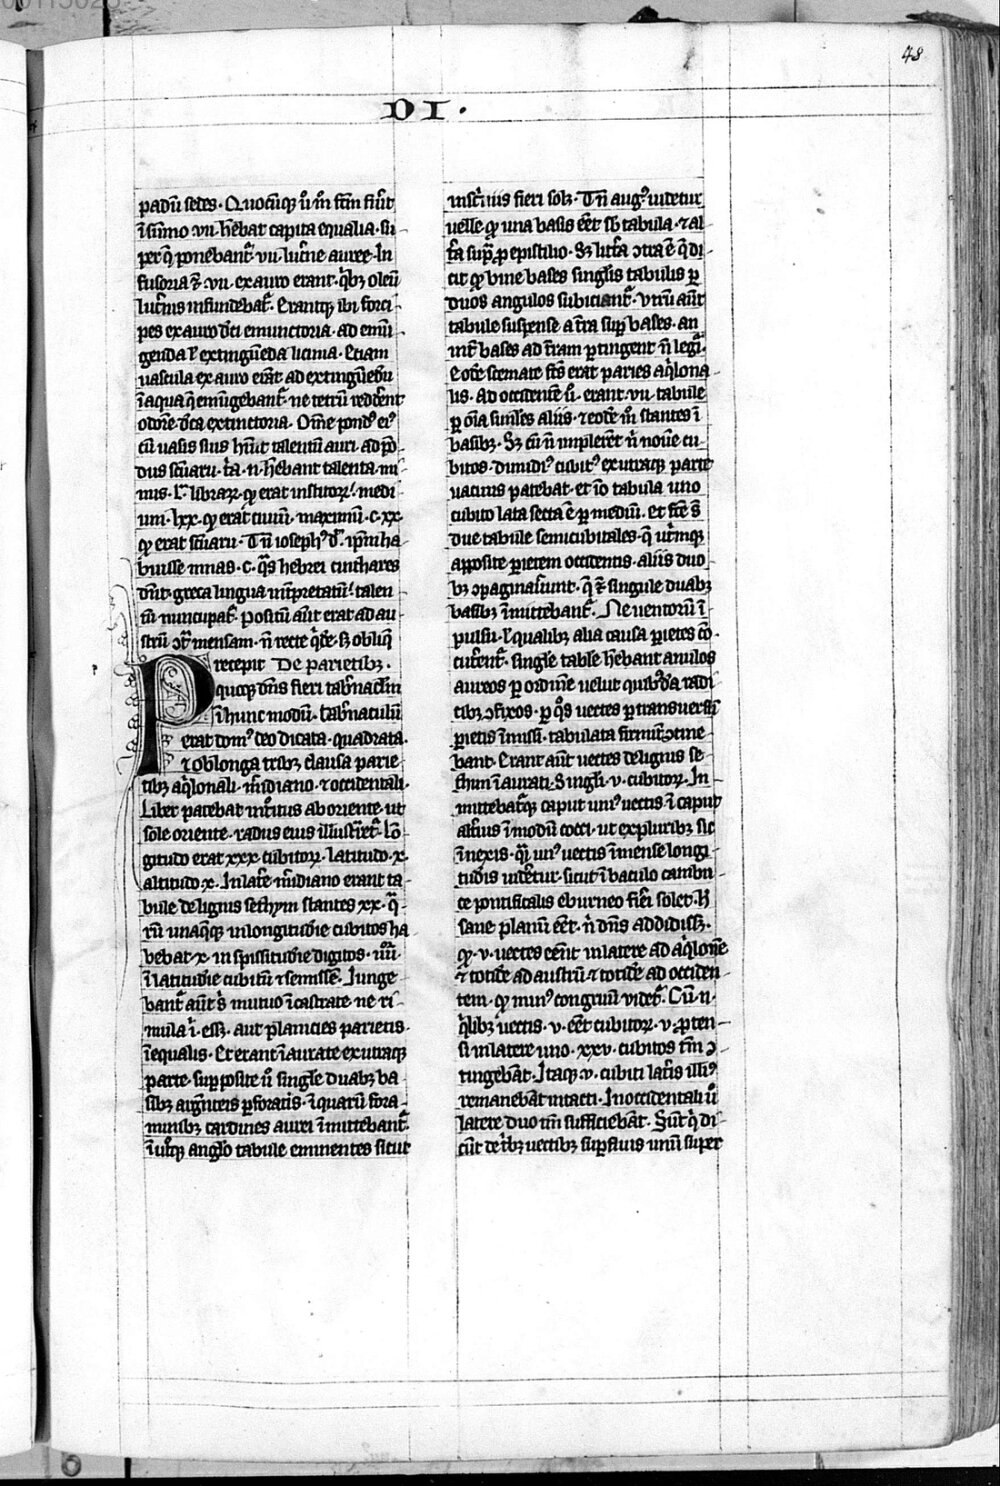 48
DI.
padū sedes. Quocūqꝫ ū m̄ fcm̄ fiūt
ī sūmo vii. hēbat capita equalia. su
per q̄ ponebant᷑ vii. luc̄ne auree. In
fusoria ⁊̄. vii. ex auro erant. qⁱbꝫ oleū
luc̄nis infundebat᷑. Erantqꝫ ibi forci
pes ex auro d̄ci emunctoria. ad emū
genda ł extinguēda licinia. Etiam
uascula ex auro erāt ad extinguēdū
ī aqua q̄ emūgebant᷑. ne tetrū redderēt
odorē. d̄ca extinctoria. Om̄e pondꝰ eiꝰ
cū uasis suis hūit talentū auri. ad pō
dus sc̄uaru. tⁱa. n. hēbant talenta. mi
nus. l. librarꝝ. qꝫ erat institorꝝ. medi
um. lxx. qꝫ erat ciuiū. maximū. c.xx.
qꝫ erat sc̄uaru. Tn̄ iosephꝰ d̄. ip̄m ha
buisse mnas. c. qͣs hebrei cinchares
dn̄t. greca lingua int̄pretatū. talen
tū nuncupat᷑. Positū aūt erat ad au
strū ↄtͣ mensam. n̄ recte qⁱdē. sꝫ obliq̄
Precepit De parietibꝫ.
quoqꝫ dn̄s fieri tab̄nacl̄m
ī hunc modū. tab̄naculū
erat domꝰ deo dicata. quadrata.
⁊ oblonga tribꝫ clausa parie
tibꝫ aqⁱlonali. m̄idiano. ⁊ occidentali.
Liber patebat int̄itus ab oriente. ut
sole oriente. radiis eius illustͬret᷑. Lō
gitudo erat xxx. cubitorꝝ. latitudo. x.
altitudo. x. In laterē m̄idiano erant ta
bule de lignis sethym stantes xx. qͣ
rū unaqͣqꝫ in longitudīe cubitos ha
bebat. x. in spissitudīe digitos. iiii.
ī latitudīe cubitū ⁊ semissē. Junge
bant᷑ aūt s̄ mutuo īcastrate. ne ri
mula ī eēt. aut planicies parietis.
īequalis. Et erant īaurate ex utraqꝫ
parte. supposite ū singl̄e duabꝫ ba
sibꝫ argēteis ꝑforatis. ī quarū fora
minibꝫ cardines aurei īmittebant᷑.
ī utqꝫ angl̄o tabule eminentes sicut
uelle qꝫ una basis eēt sb̄ tabula. ⁊ al
cit qꝫ bine bases singl̄is tabulis ꝑ
duos angulos subiciant᷑. Vtrū aūt
tabule suspense a t̄ra sup̄ bases. an
int̄ bases ad t̄ram ꝑtingent n̄ legⁱ.
Eodē scemate fc̄s erat paries aqⁱlona
lis. Ad occidentē ū. erant. vii. tabule
ꝑ oīa similes aliis. ⁊ eodē m̄ stantes ī
basibꝫ. Sꝫ cū n̄ implerēt n̄ nouē cu
bitos. dimidiꝰ cubitꝰ ex utraqꝫ parte
uacuus patebat. et iō tabula uno
cubito lata secta ē ꝑ mediū. et fc̄e s̄
due tabule semicubitales. q̄ utⁱmqꝫ
apposite ꝑietem occidentis. aliis duo
bꝫ ↄpaginate sunt. q̄ ⁊̄ singule duabꝫ
basibꝫ īmittebant᷑. Ne uentorū ī
pulsu. ł qualibꝫ alia causa ꝑietes cō
cutēnt᷑. singl̄e tabl̄e hēbant anulos
aureos ꝑ ordinē uelut quibͥdā radi
cibꝫ ↄfixos. ꝑ qͦs uectes ꝑ transuersū
ꝑietis īmissi. tabulata firmit̄ ↄtine
bant. Erant aūt uectes de lignis se
thim īaurati. Singli. v. cubitorꝝ. In
mittebat᷑qꝫ caput uniꝰ uectis ī caput
alt̄ius ī modū cocci. ut ex pluribꝫ sic
īnexis. qͣi unꝰ uectis īmense longi
tudīs uidēretur. sicut ī baculo cambu
ce pontificalis eburneo fieri solet. Hͦ
sane planū eēt. n̄ dn̄s addidisꝫ.
qꝫ. v. uectes eēnt in latere ad aqⁱlonē
⁊ totidē ad austrū ⁊ totidē ad occiden
tem. qꝫ minꝰ congruū videt᷑. Cū. n.
qⁱlibꝫ uectis. v. eēt cubitorꝝ. v. ꝓten
si in latere uno. xxv. cubitos tm̄ ↄ
tingebāt. Itaqꝫ. v. cubiti lat̄is illiꝰ
remanebāt intacti. In occidentali ū
latere duo tm̄ sufficiebāt. Sūt qⁱ di
cūt de tⁱbꝫ uectibꝫ suꝑfluis unū super